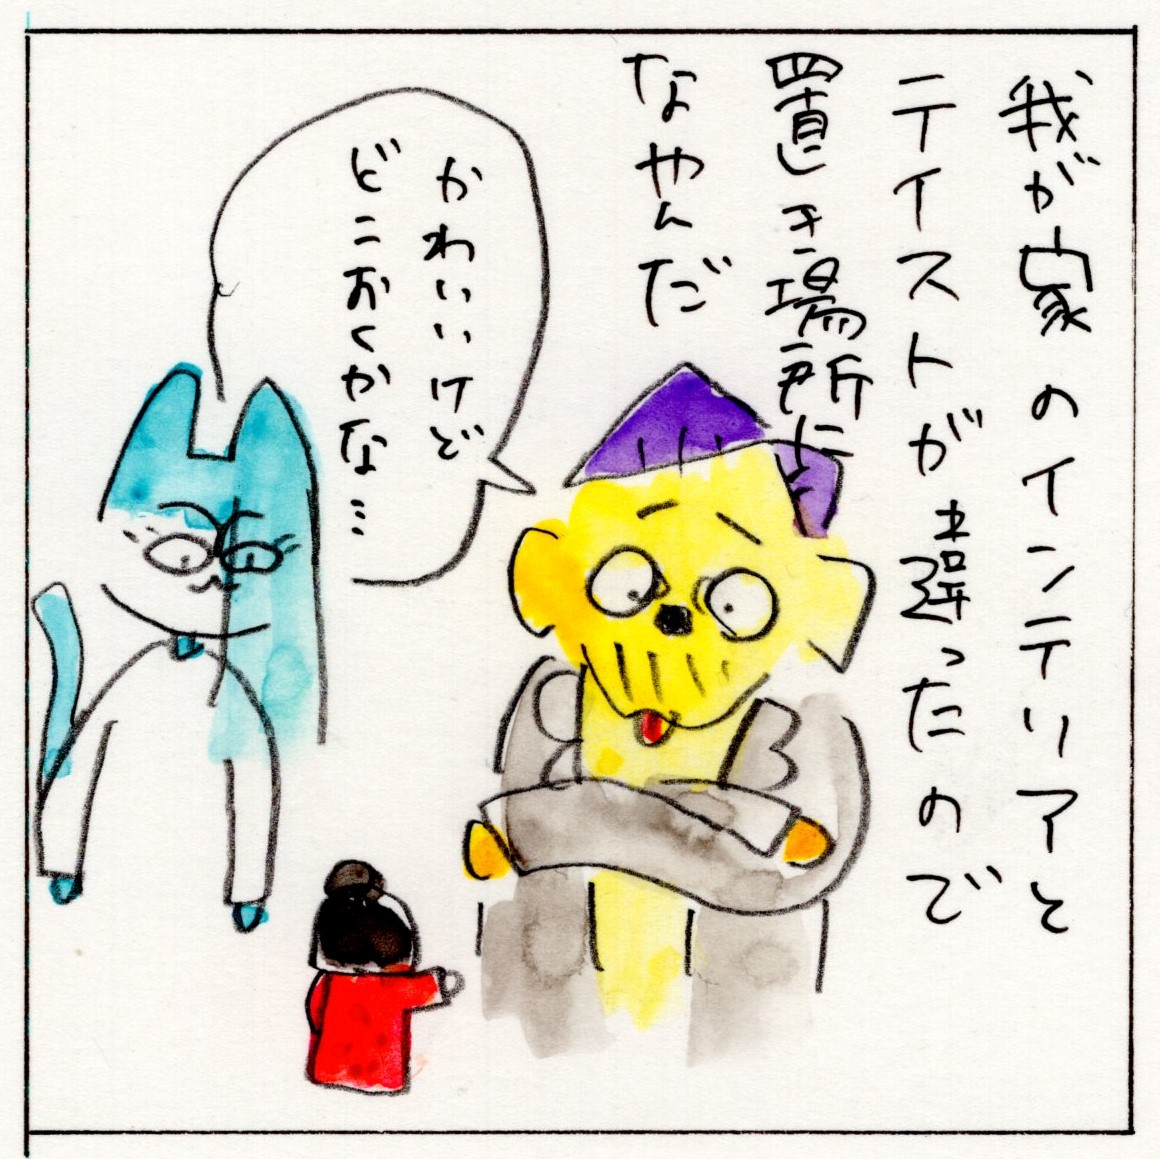 我が家のインテリアと
テイストが違ったので
置き場所に
なやんだ
かわいいけど
どこおくかな…